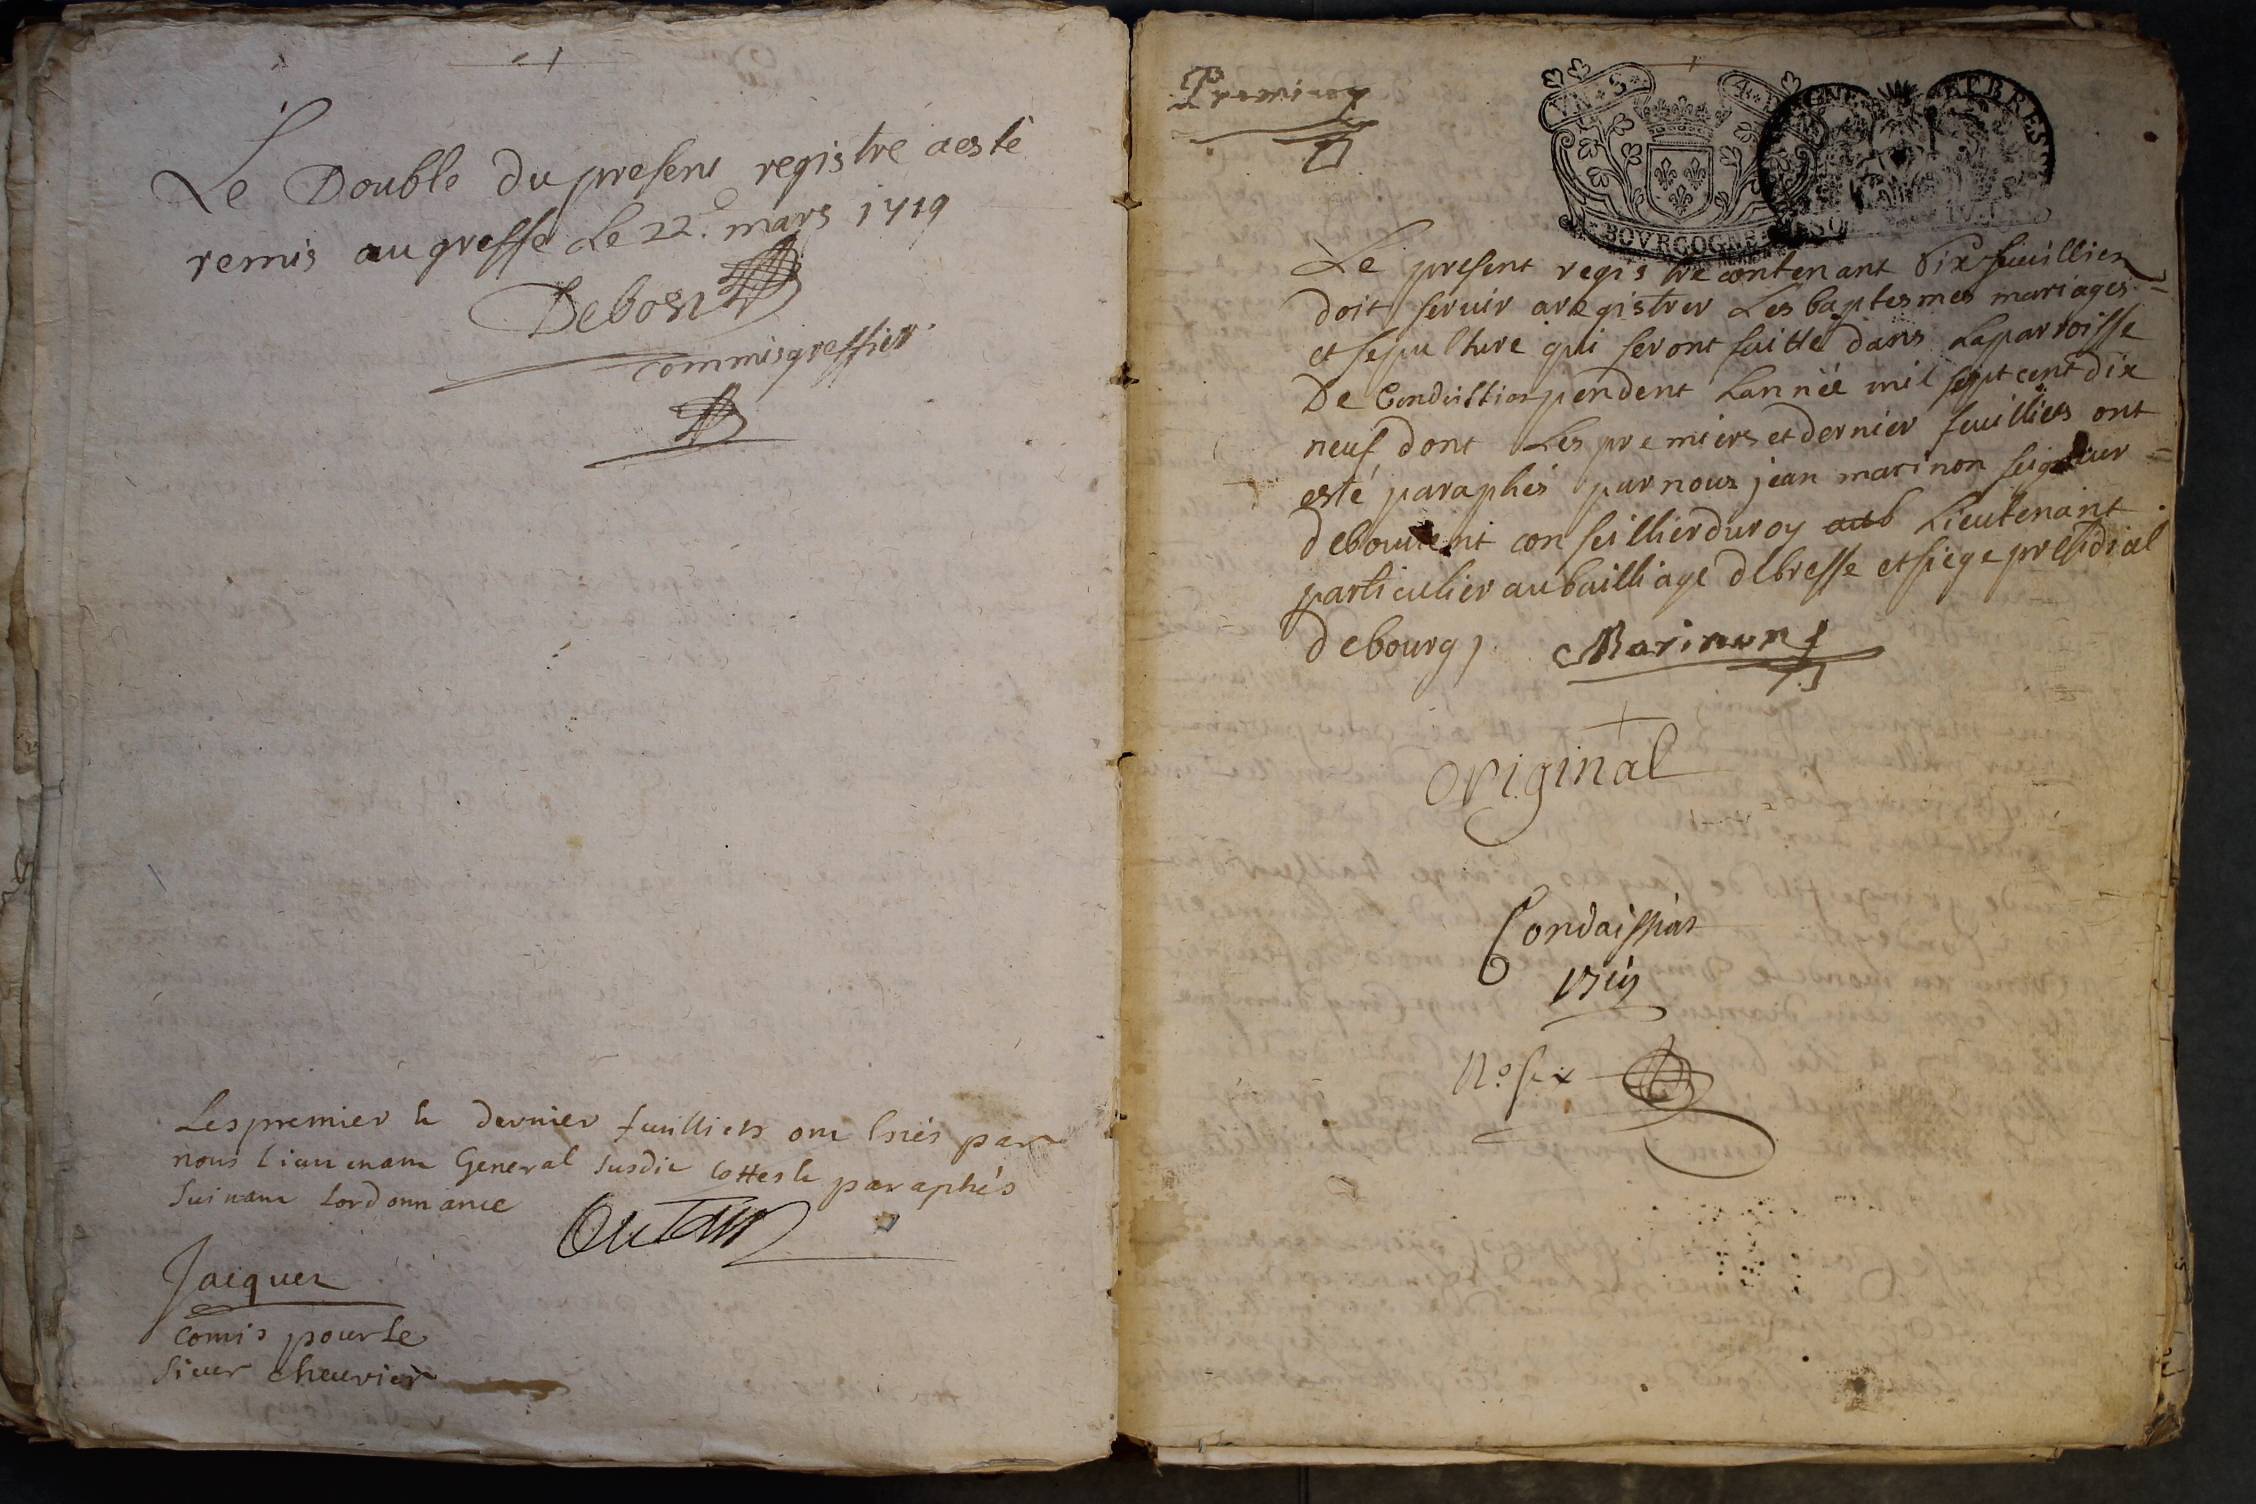 Le Double du present registre a esté
remis au greffe Le 22e. mars 1719
Debost
commis greffier
Les premier & dernier feuillets ont estés par
nous Lieutenant General susdit cottes & paraphés
suivant Lordonnance
Jacquet
comis pour Le
sieur cheurier
Premier
VN S
BOVRGOGNE
ET BRES
Le present registre contenant six feuillien
doit seruir a regis trer Les baptesmes mariages
et sepulture qui seront faitte dans La parroisse
De Condaissiat pendent Lannée mil sept cent dix
neuf dont Les premiers et dernier feuillies ont
esté paraphés par nous jean marinon seigneur
de conseillier du roy Lieutenant
particulier au bailliage de bresse et siege presidial
de bourg
Marinon
Original
Condaissiat
1719
No. six